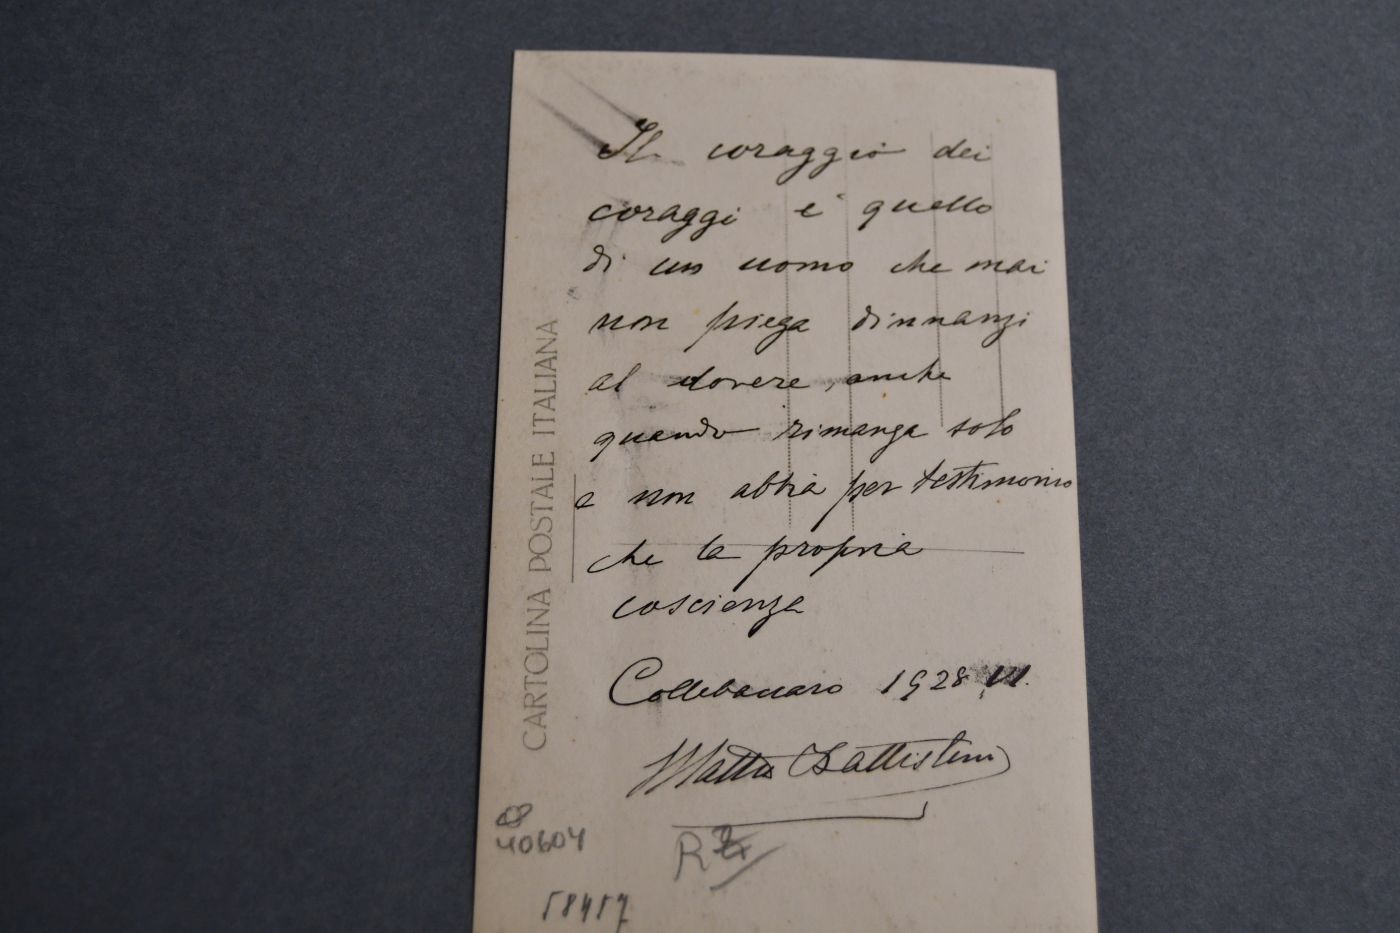 Il coraggio dei
coraggi e' quello
di un uomo che mai
non piega dinnanzi
al dovere, anche
quando rimanga solo
e non abbia per testimonio
che la propria
coscienza
Collebaccaro 1928 VI.
Mattia Battistini
CARTOLINA POSTALE ITALIANA
40604
58457
R